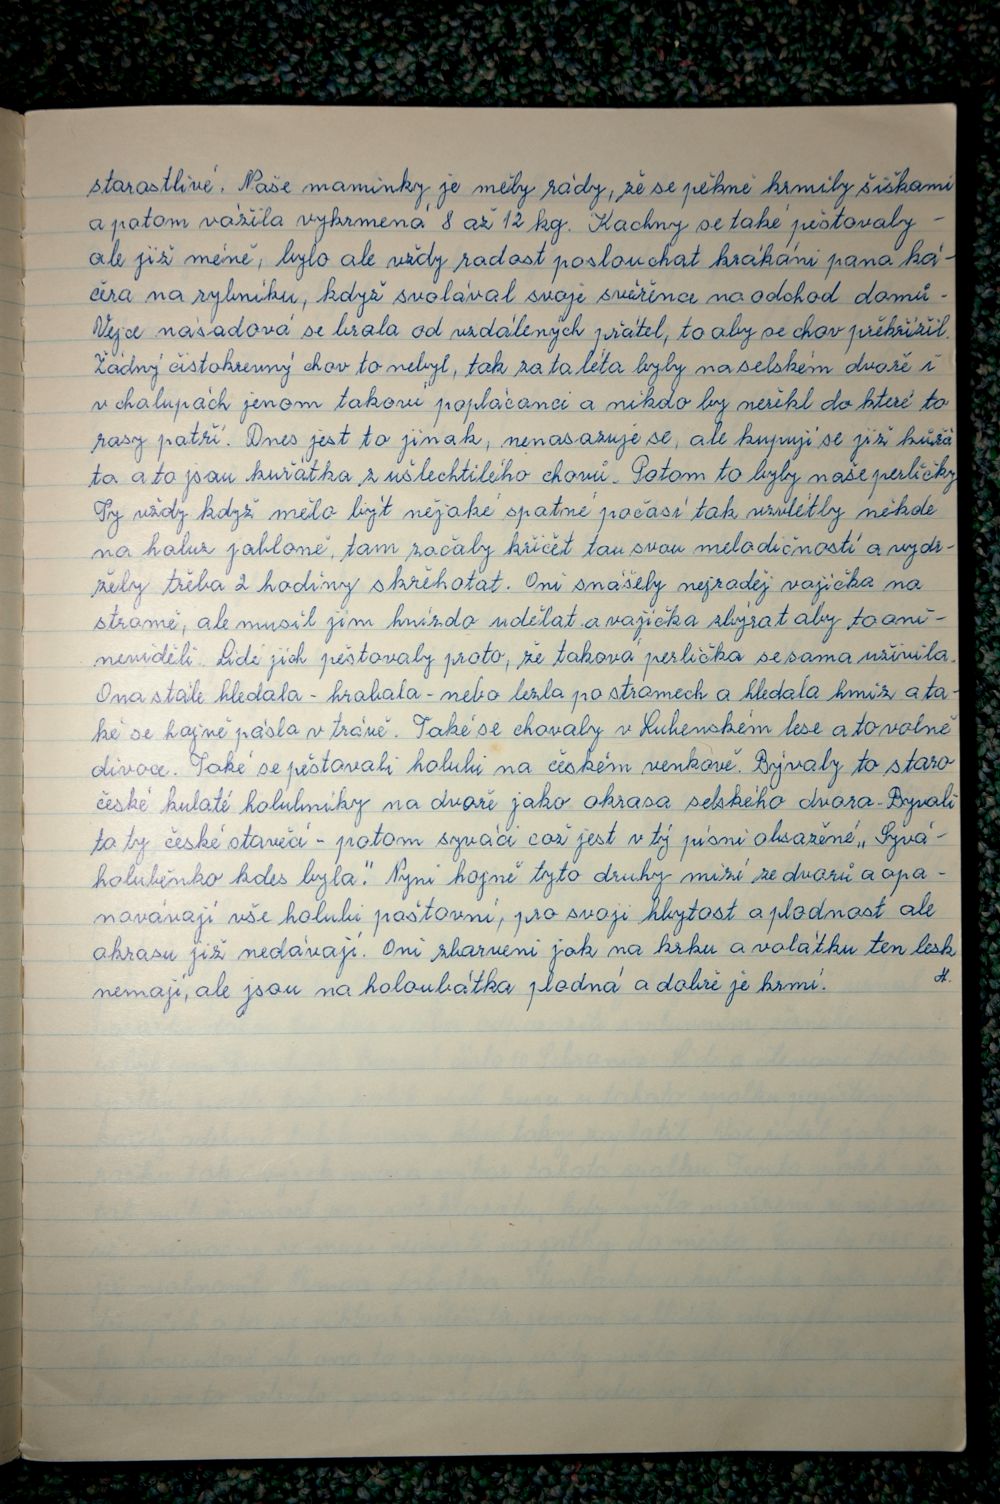 starostlivé. Naše maminky je měly rády, že se pěkně krmily šiškami
a potom vážila vykrmená 8 až 12 kg. Kachny se také pěstovaly -
ale již méně, bylo ale vždy radost poslouchat krákání pana ká-
čera na rybníku, když svolával svoje svěřence na odchod domů -
Vejce násadová se brala od vzdálených přátel, to aby se chov překřížil.
Žádný čistokrevný chov to nebyl, tak za ta léta byly na selském dvoře i
v chalupách jenom takoví poplácanci a nikdo by neřekl do které to
rasy patří. Dnes jest to jinak, nenasazuje se, ale kupují se již kuřá
ta a to jsou kuřátka z ušlechtilého chovů. Potom to byly naše perličky
Ty vždy když mělo být nějaké špatné počasí tak vzvlétly někde
na haluz jabloně, tam začaly křičet tou svou melodičností a vydr-
žely třeba 2 hodiny skřehotat. Oni snášely nejraději vajíčka na
stromě, ale musil jim hnízdo udělat a vajíčka sbírat aby to ani -
neviděli. Lidé jich pěstovaly proto, že taková perlička se sama uživila.
Ona stále hledala - hrabala - nebo lezla po stromech a hledala hmiz a ta-
ké se hojně pásla v trávě. Také se chovaly v Luhenském lese a to volně
divoce. Také se pěstovali holubi na českém venkově. Bývaly to staro
české kulaté holubníky na dvoře jako okrasa selského dvora - Byvali
to ty české staveči - potom syváci což jest v tý písni obsaženě „Syvá-
holuběnko kdes byla." Nyní hojně tyto druhy mizí ze dvorů a opa -
novávají vše holubi poštovní, pro svoji hbytost a plodnost ale
okrasu již nedávají. Oni zbarveni jak na krku a volátku ten lesk
nemají, ale jsou na holoubátka plodná a dobře je krmí. H.